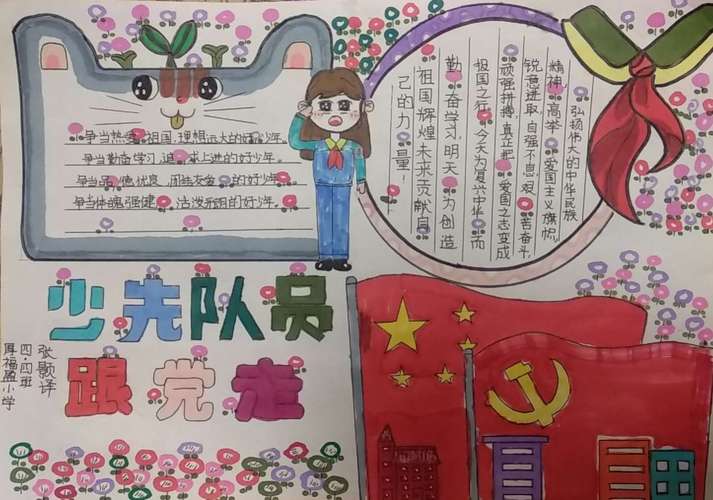 争当热爱祖国、理想远大的好少年。
争当勤奋学习、追求上进的好少年。
争当品德优良、团结友爱的好少年。
争当体魄强健、活泼开朗的好少年。
弘扬伟大的中华民族
精神,高举爱国主义旗帜,
锐意进取,自强不息,艰苦奋斗,
顽强拼搏,真正把爱国之志变成
报国之行。今天为复兴中华而
勤奋学习,明天为创造
祖国辉煌未来贡献自
己的力量!
少先队员
跟党走
张颢译
四.四班
厚福盈小学